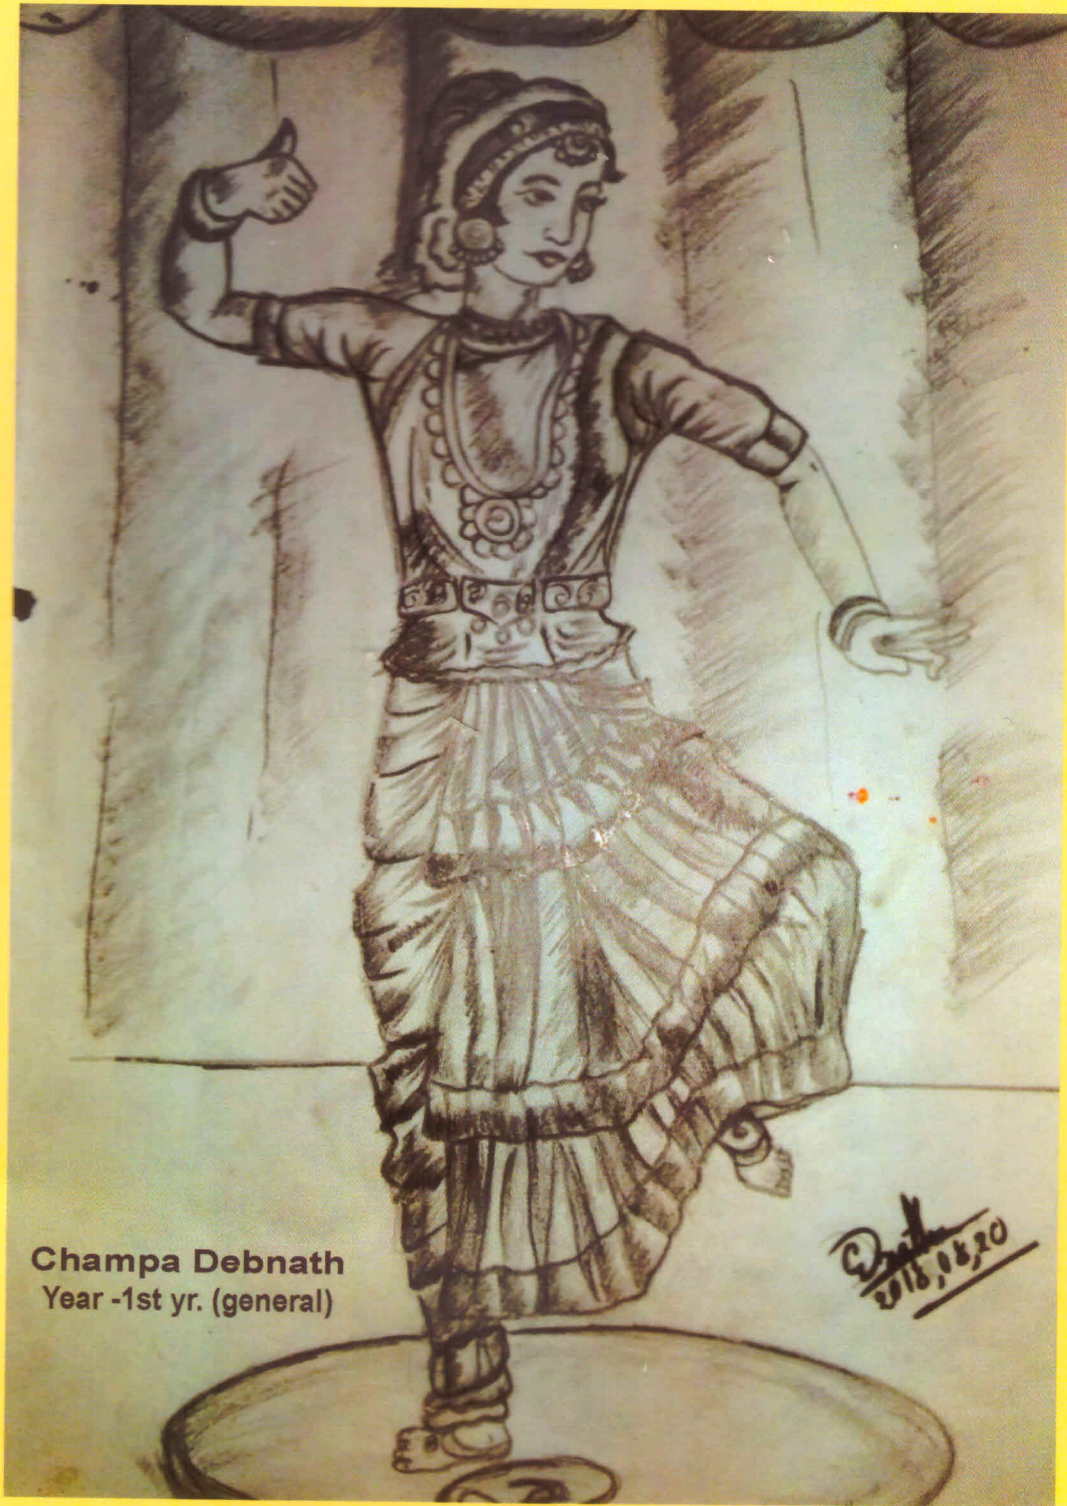 Champa Debnath
Year -1st yr. (general)
2018,08,20